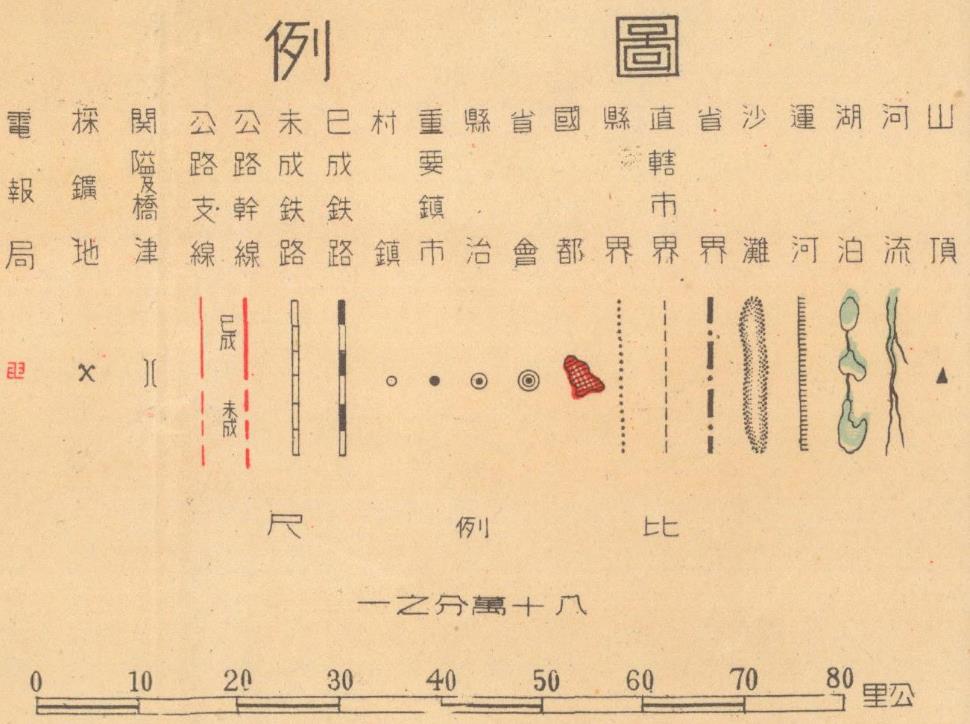 圖例
山頂
河流
湖泊
運河
沙灘
省界
直轄市界
縣界
國都
省會
縣治
重要鎮市
村鎮
已成鉄路
未成鉄路
公路幹線
公路支線
已成
未成
関隘及橋津
採鑛地
電報局
比例尺
八十萬分之一
0 10 20 30 40 50 60 70 80 公里